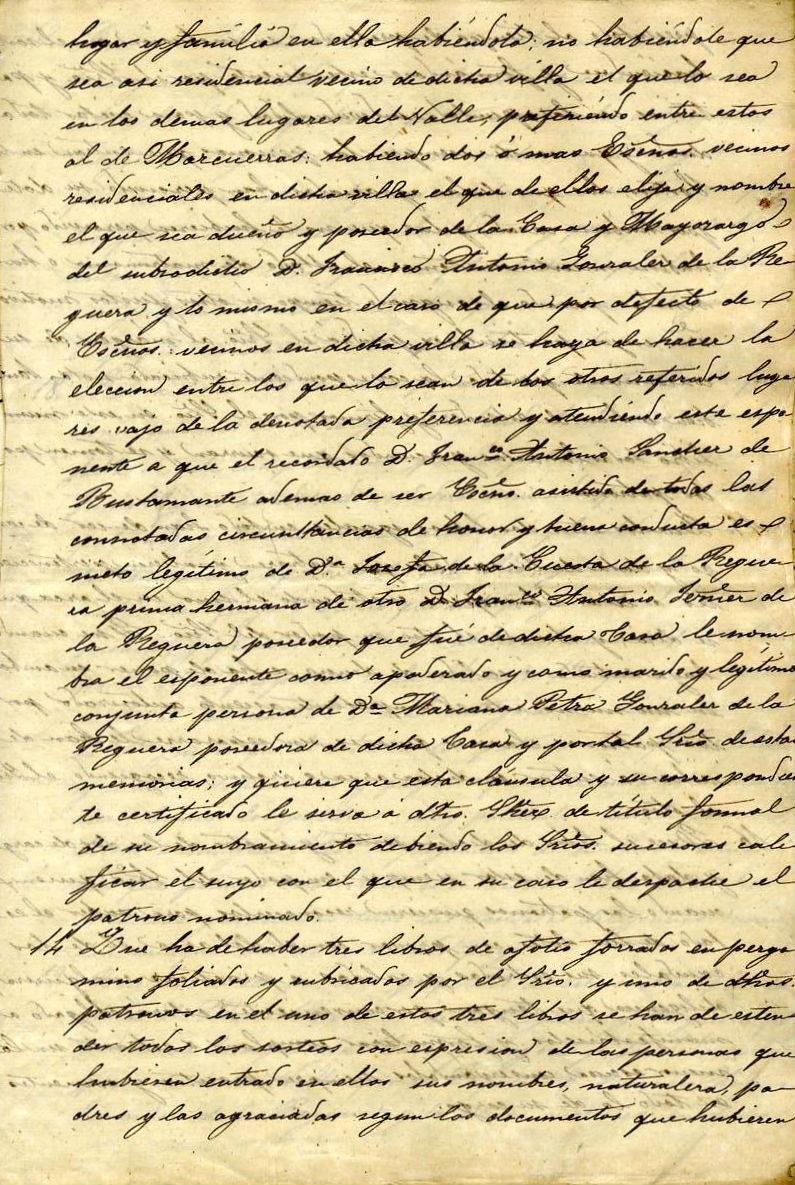 hogar y família en ella habiéndola; no habiéndole que
sea asi residencial vecino de dicha villa el que lo sea
en los demas lugares del Valle, prefiriéndo entre estos
al de Mazcuerras; habiendo dos ó mas Escños. vecinos
residenciales en dicha villa el que de ellos elija y nombre
el que sea dueño y poseedor de la Casa y Mayorazgo
del susodicho D. Francisco Antonio Gonzalez de la Re
guera y lo mismo en el caso de que por defecto de
Escños. vecinos en dicha villa se haya de hacer la
eleccion entre los que lo sean de los otros referidos luga
res vajo de la denotada preferencia y atendiendo este espo
nente a que el recordado D. Franco. Antonio Sanchez de
Bustamante ademas de ser Escño. asistido de todas las
connotadas circunstancias de honor y buena conducta es
nieto legítimo de Da. Josefa de la Cuesta de la Regue
ra prima hermana de otro D. Franco. Antonio Gonzer de
la Reguera poseedor que fué de dicha Casa le nom
bra el esponente como apoderado y como marido y legítima
conjunta persona de Da. Mariana Petra Gonzalez de la
Reguera poseedora de dicha Casa y por tal Srio. de esta
memorias; y quiere que esta cláusula y su correspondien
te certificado le sirva á dho. Shez. de título formal
de su nombramiento debiendo los Srios. sucesores cali
ficar el suyo con el que en su caso le despache el
patrono nominado.
14 Que ha de haber tres libros de afolio forrados en perga
mino foliados y rubricados por el Srio. y uno de dhos.
patronos en el uno de estos tres libros se han de esten
der todos los sorteos con espresion de las personas que
hubieren entrado en ellos sus nombres, naturaleza, pa
dres y las agraciadas segun los documentos que hubieren